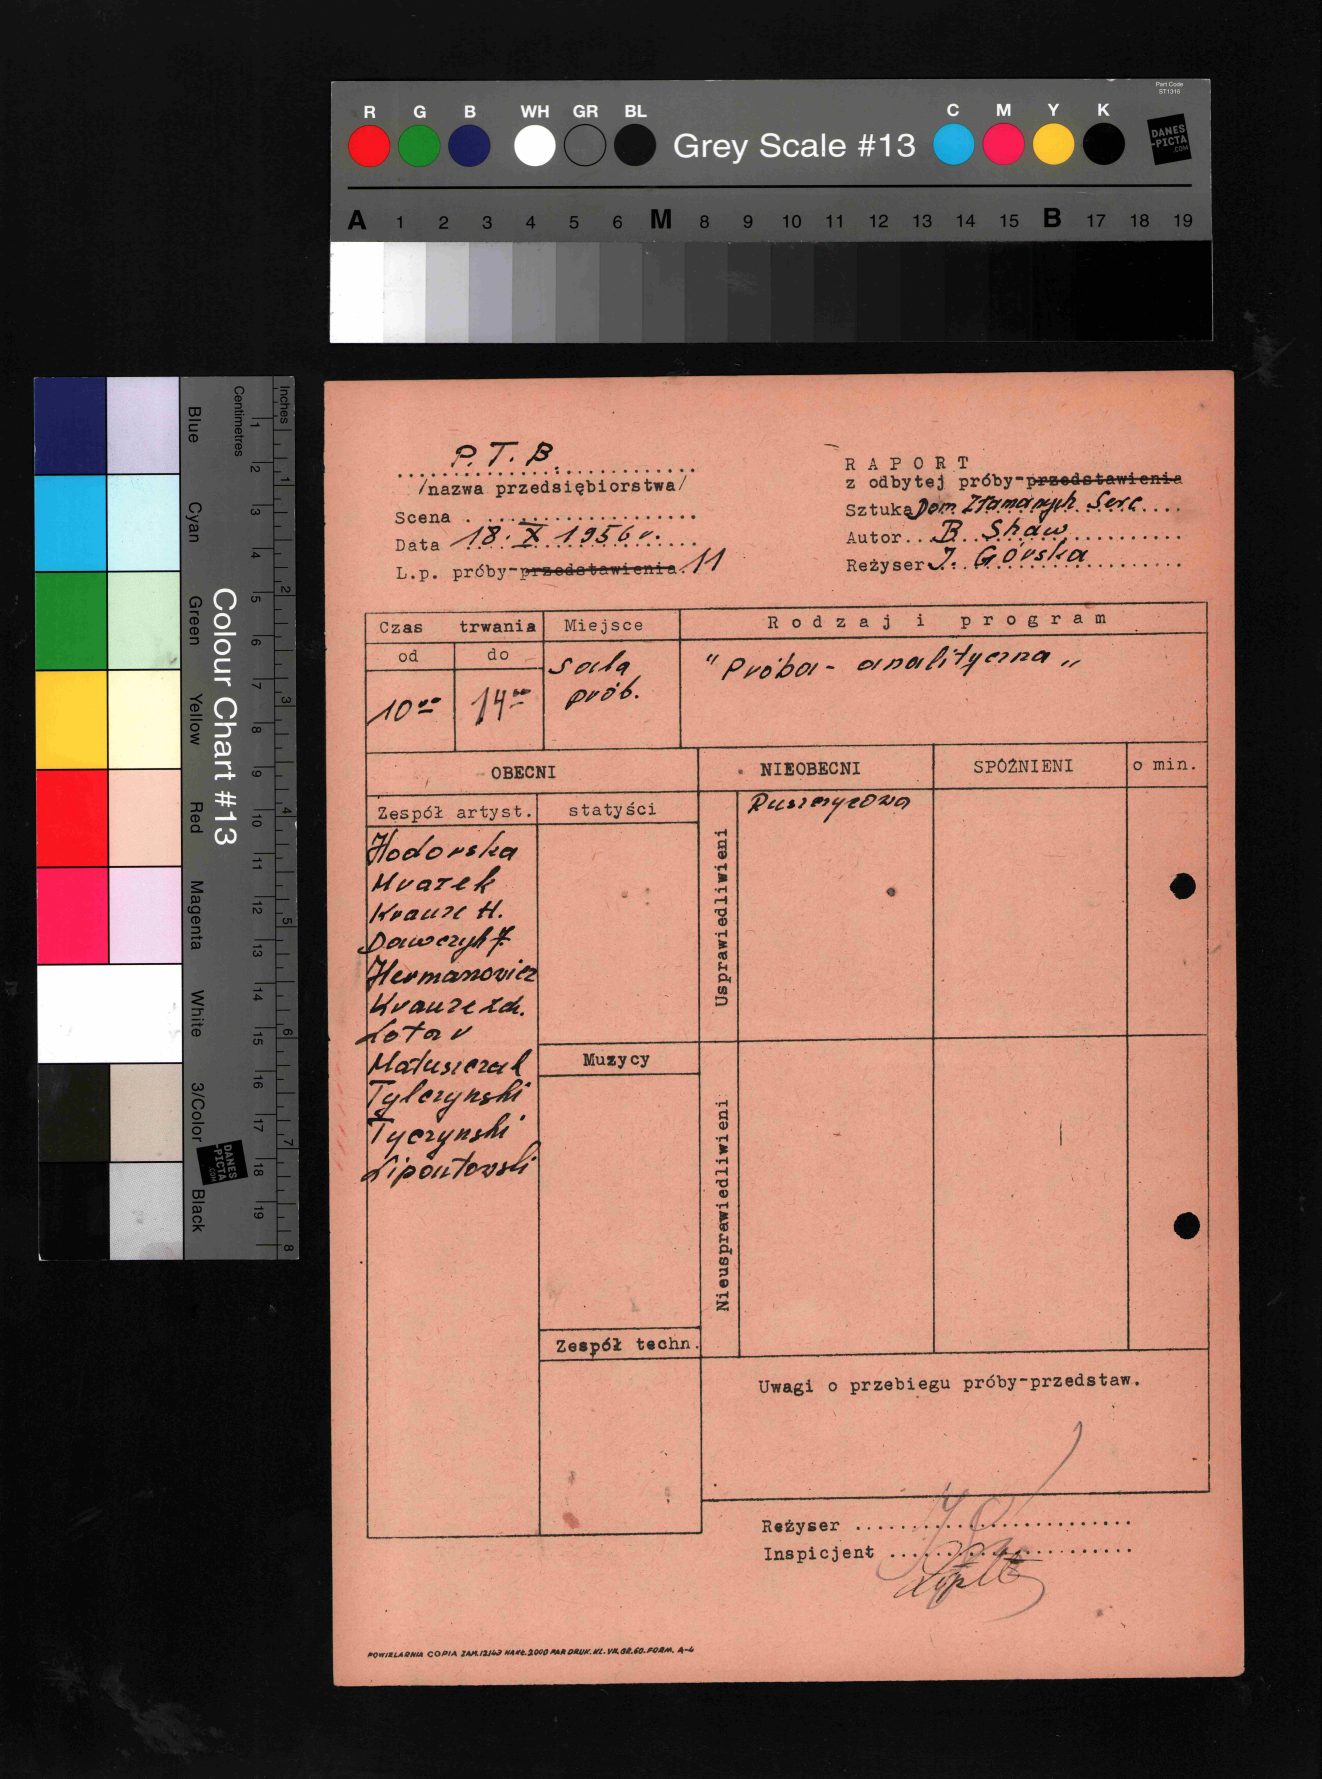 Part Code
ST1316
R G B WH GR BL Grey Scale #13 C M Y K
DANES
-PICTA
.COM
A 1 2 3 4 5 6 M 8 9 10 11 12 13 14 15 B 17 18 19
Colour Chart #13
Blue Cyan Green Yellow Red Magenta White 3/Color Black
Centimetres
1 2 3 4 5 6 7 8 9 10 11 12 13 14 15 16 17 18 19
Inches
1 2 3 4 5 6 7 8
DANES
-PICTA
.COM
P. T. B.
/nazwa przedsiębiorstwa/
Scena
Data 18. X 1956 r.
L.p. próby-przedstawienia. 11
RAPORT
z odbytej próby-przedstawienia
Sztuka Dom Złamanych Serc
Autor B. Shaw
Reżyser I. Górska
Czas trwania Miejsce Rodzaj i program
od do
10⁰⁰ 14⁰⁰
sala
prób.
"Próba - analityczna"
OBECNI NIEOBECNI SPÓŹNIENI o min.
Zespół artyst. statyści
Usprawiedliwieni
Ruszczycowa
Hodorska
Mrazek
Krauze H.
Dawczyk J.
Hermanowicz
Krauze Zdz.
Lotar
Matuszczak
Tylczynski
Tyczynski
Lipoutowski
Muzycy
Nieusprawiedliwieni
Zespół techn.
Uwagi o przebiegu próby-przedstaw.
Reżyser
Inspicjent
POWIELARNIA COPIA ZAM. 12143 NAKŁ. 2000 PAP. DRUK. KL. VII. GR. 60. FORM. A-4